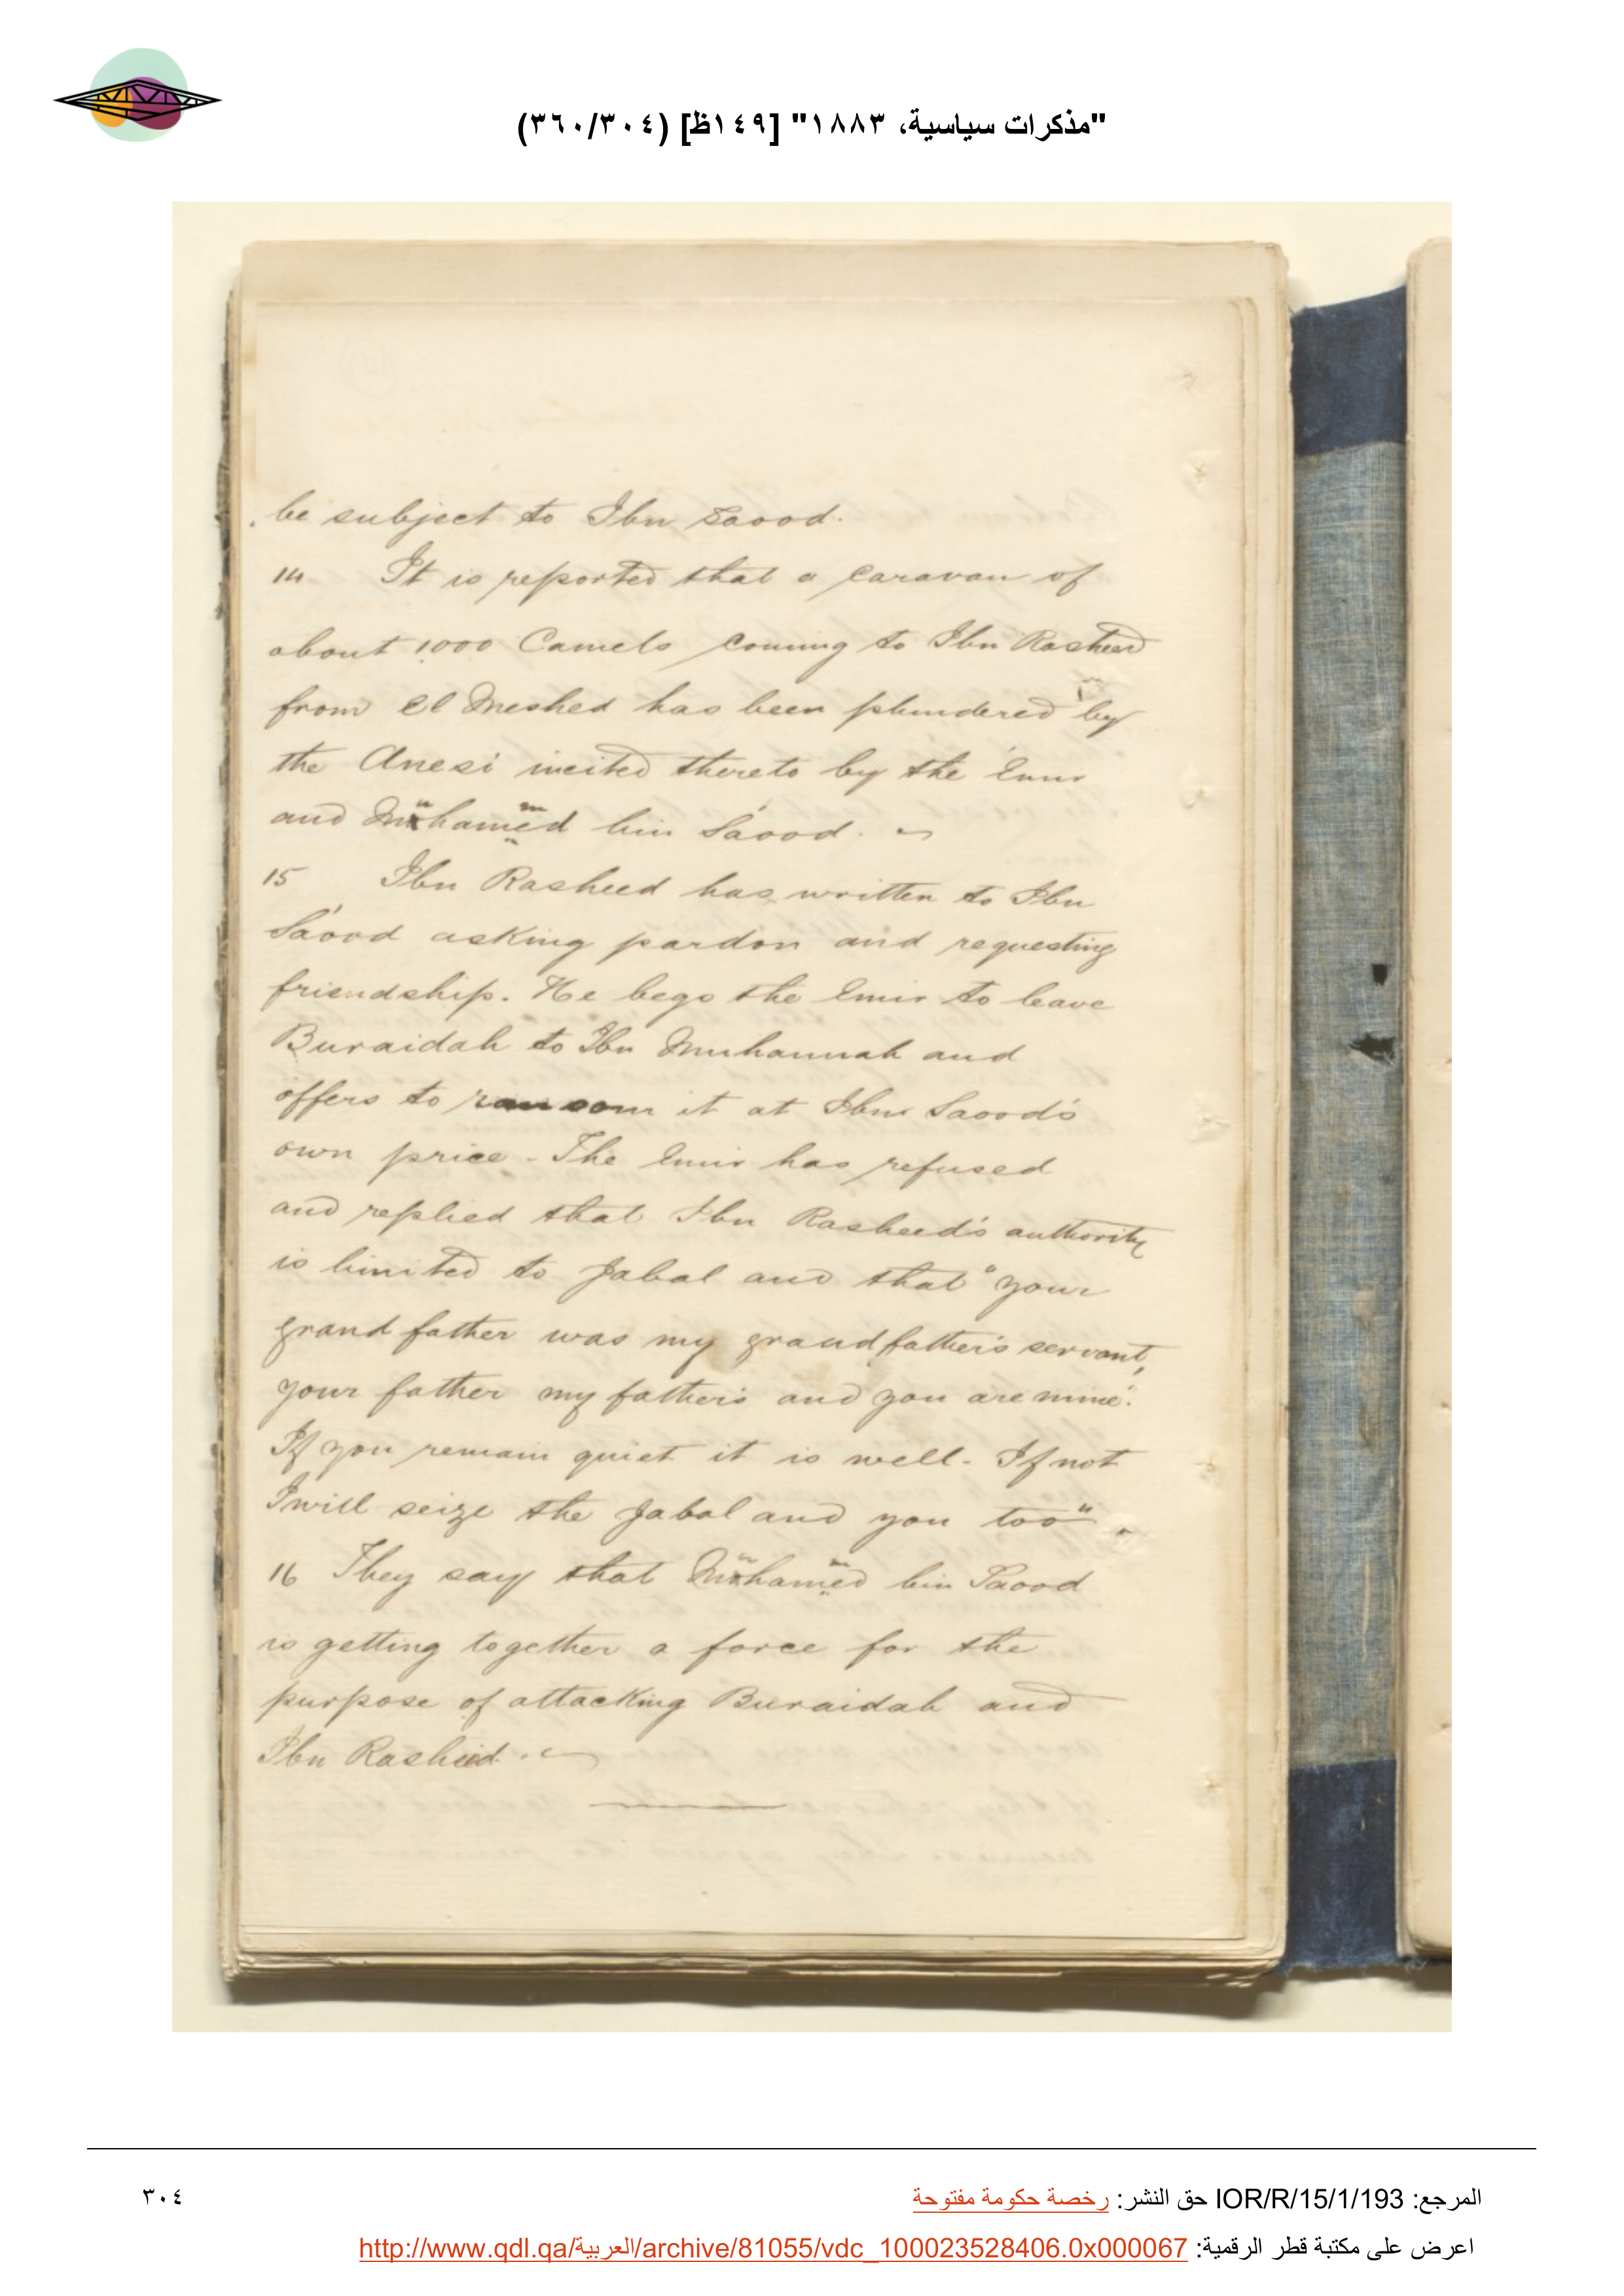 "مذكرات سياسية، ١٨٨٣" [١٤٩ظ] (٣٦٠/٣٠٤)
be subject to Ibn Saood.
14 It is reported that a Caravan of
about 1000 Camels coming to Ibn Rasheed
from El Meshed has been plundered by
the Anezi incited thereto by the Emir
and Mühamëd bin Sáood.
15 Ibn Rasheed has written to Ibn
Sáood asking pardon and requesting
friendship. He begs the Emir to leave
Buraidah to Ibn Muhannah and
offers to ransom it at Ibn Saood's
own price - The Emir has refused
and replied that Ibn Rasheed's authority
is limited to Jabal and that "your
grand father was my grandfather's servant,
your father my father's and you are mine".
If you remain quiet it is well - If not
I will seize the Jabal and you too".
16 They say that Mohamed bin Saood
is getting together a force for the
purpose of attacking Buraidah and
Ibn Rasheed.
المرجع: IOR/R/15/1/193 حق النشر: رخصة حكومة مفتوحة
٣٠٤
اعرض على مكتبة قطر الرقمية: http://www.qdl.qa/العربية/archive/81055/vdc_100023528406.0x000067